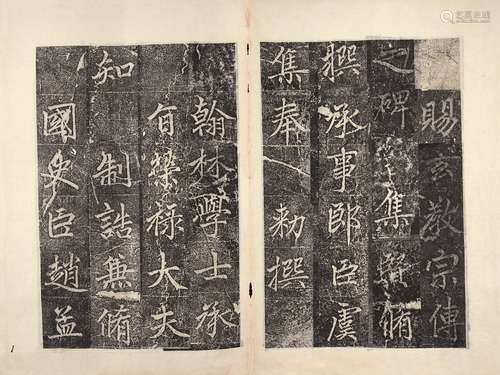 賜玄教宗傳
之碑 集賢脩
撰承事郎臣虞
集奉 勑撰
翰林學士承
旨榮祿大夫
知 制誥兼脩
國史臣趙孟
1